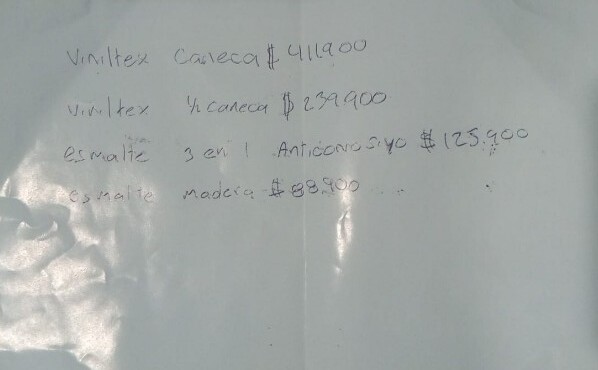 Viniltex Caneca $ 411.900
Viniltex 1/2 caneca $ 239.900
esmalte 3 en 1 Anticorrosivo $ 125.900
esmalte madera $ 88.900